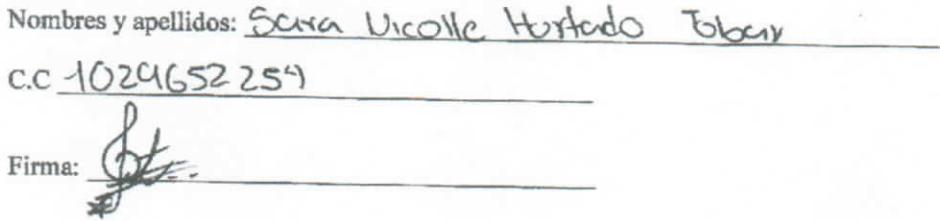 Nombres y apellidos: Sara Nicolle Hurtado Tobar
C.C 1029652254
Firma: